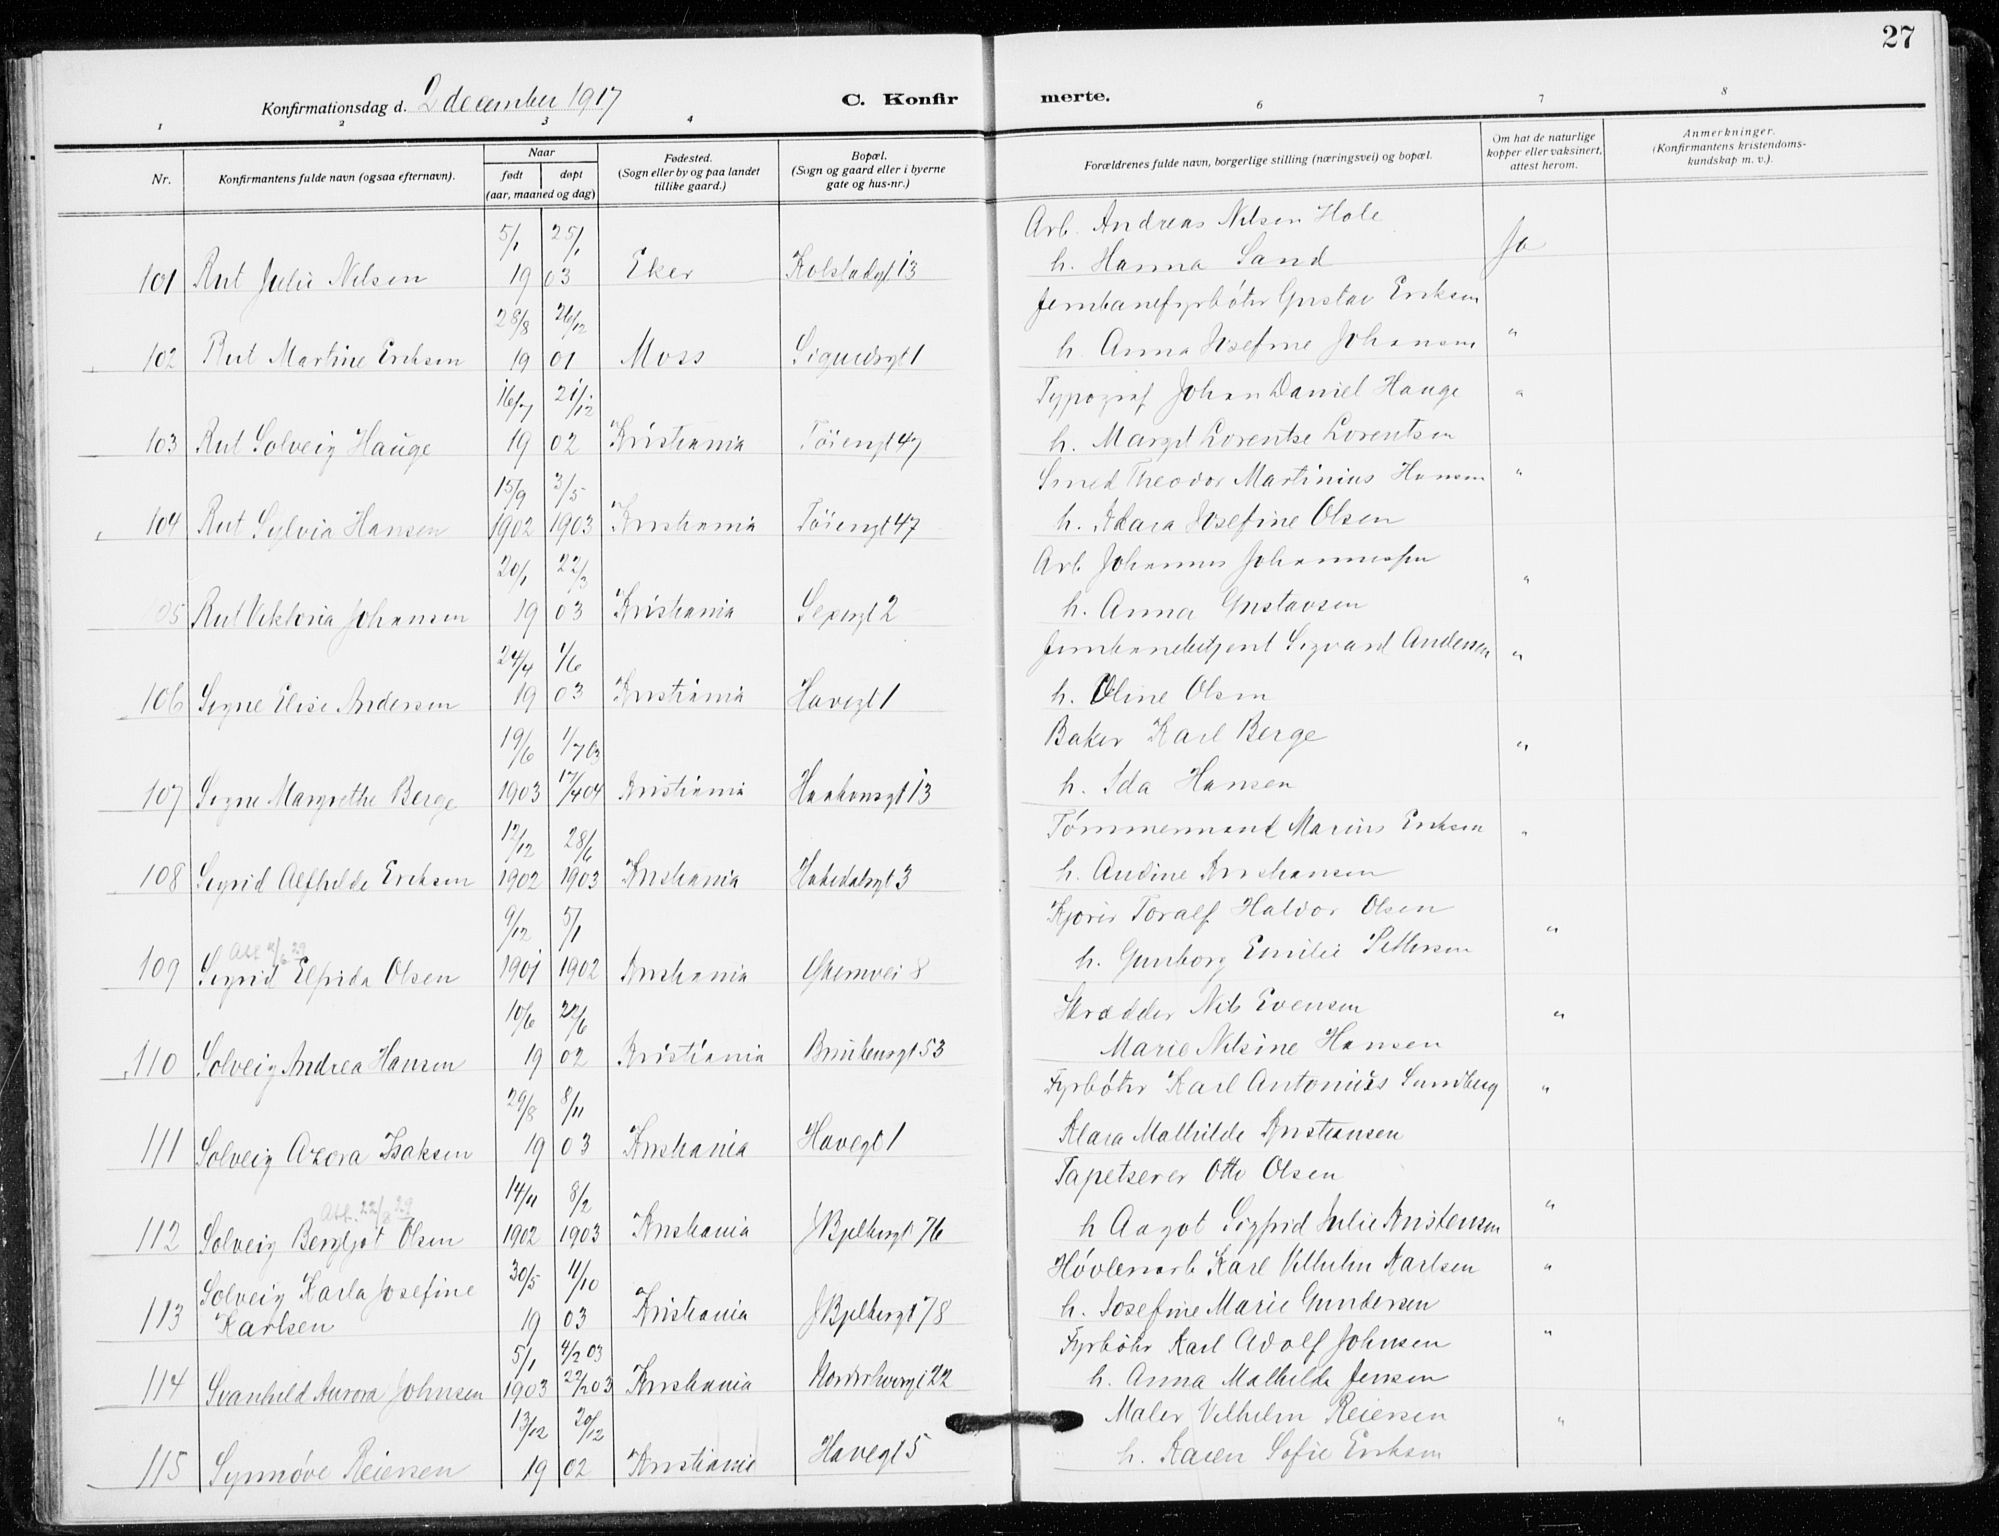 27
Konfirmationsdag d. 2 december 1917
C. Konfirmerte.
1 2 3 4 6 7 8
Nr.
Konfirmantens fulde navn (ogsaa efternavn).
Naar
født døpt
(aar, maaned og dag)
Fødested.
(Sogn eller by og paa landet
tillike gaard.)
Bopæl.
(Sogn og gaard eller i byerne
gate og hus-nr.)
Forældrenes fulde navn, borgerlige stilling (næringsvei) og bopæl.
Om hat de naturlige
kopper eller vaksinert,
attest herom.
Anmerkninger.
(Konfirmantens kristendoms-
kundskap m. v.).
5/1 25/1 Arb. Andreas Nilsen Hole
101 Rut Julie Nilsen 19 03 Eker Kolstadgt 13 h. Hanna Sand Ja
28/8 26/12 Jernbanefyrbøter Gustav Eriksen
102 Rut Martine Eriksen 19 01 Moss Sigurdsgt 1 h. Anna Josefine Johansen "
16/7 21/12 Typograf Johan Daniel Hauge "
103 Rut Solveig Hauge 19 02 Kristiania Tøiengt 47 h. Margit Lorentse Lorentsen
15/9 3/5 Smed Theodor Martinius Hansen "
104 Rut Sylvia Hansen 1902 1903 Kristiania Tøiengt 47 h. Klara Josefine Olsen
20/1 22/3 Arb. Johannes Johannessen
105 Rut Viktoria Johansen 19 03 Kristiania Sexesgt 2 h. Anna Gustavsen "
24/4 1/6 Jernbanebetjent Sigvard Andersen "
106 Signe Elise Andersen 19 03 Kristiania Havegt 1 h. Oline Olsen
19/6 1/7 03 Baker Karl Berge "
107 Signe Margrethe Berge 1903 17/4 04 Kristiania Haakonsgt 13 h. Ida Hansen
12/12 28/6 Tømmermand Marius Eriksen "
108 Sigrid Alfhilde Eriksen 1902 1903 Kristiania Hakedalsgt 3 h. Andine Kristiansen
9/12 5/1 Kjører Toralf Halvor Olsen "
109 Sigrid Elfrida Olsen 1901 1902 Kristiania Økernvei 8 h. Gunborg Emilie Pettersen
10/6 22/6 Skrædder Nils Evensen "
110 Solveig Andrea Hansen 19 02 Kristiania Brinkensgt 53 Marie Nilsine Hansen
29/8 8/11 Fyrbøter Karl Antonius Sundberg "
111 Solveig Azora Isaksen 19 03 Kristiania Havegt 1 Klara Mathilde Kristiansen
Att. 22/8 29
14/11 8/2 Tapetserer Otto Olsen "
112 Solveig Bergljot Olsen 1902 1903 Kristiania J Bjelkesgt 76 h Aagot Sigfrid Julie Kristensen
Solveig Karla Josefine 30/5 4/10 Høvleriarb Karl Vilhelm Karlsen "
113 Karlsen 19 03 Kristiania J Bjelkesgt 78 h. Josefine Marie Gundersen
5/1 4/2 03 Fyrbøter Karl Adolf Johnsen "
114 Svanhild Aurora Johnsen 1903 22/2 03 Kristiania Norderhovgt 22 h. Anna Mathilde Jensen
13/12 20/12 Maler Vilhelm Reiersen "
115 Synnøve Reiersen 19 02 Kristiania Havegt 5 h. Karen Sofie Eriksen